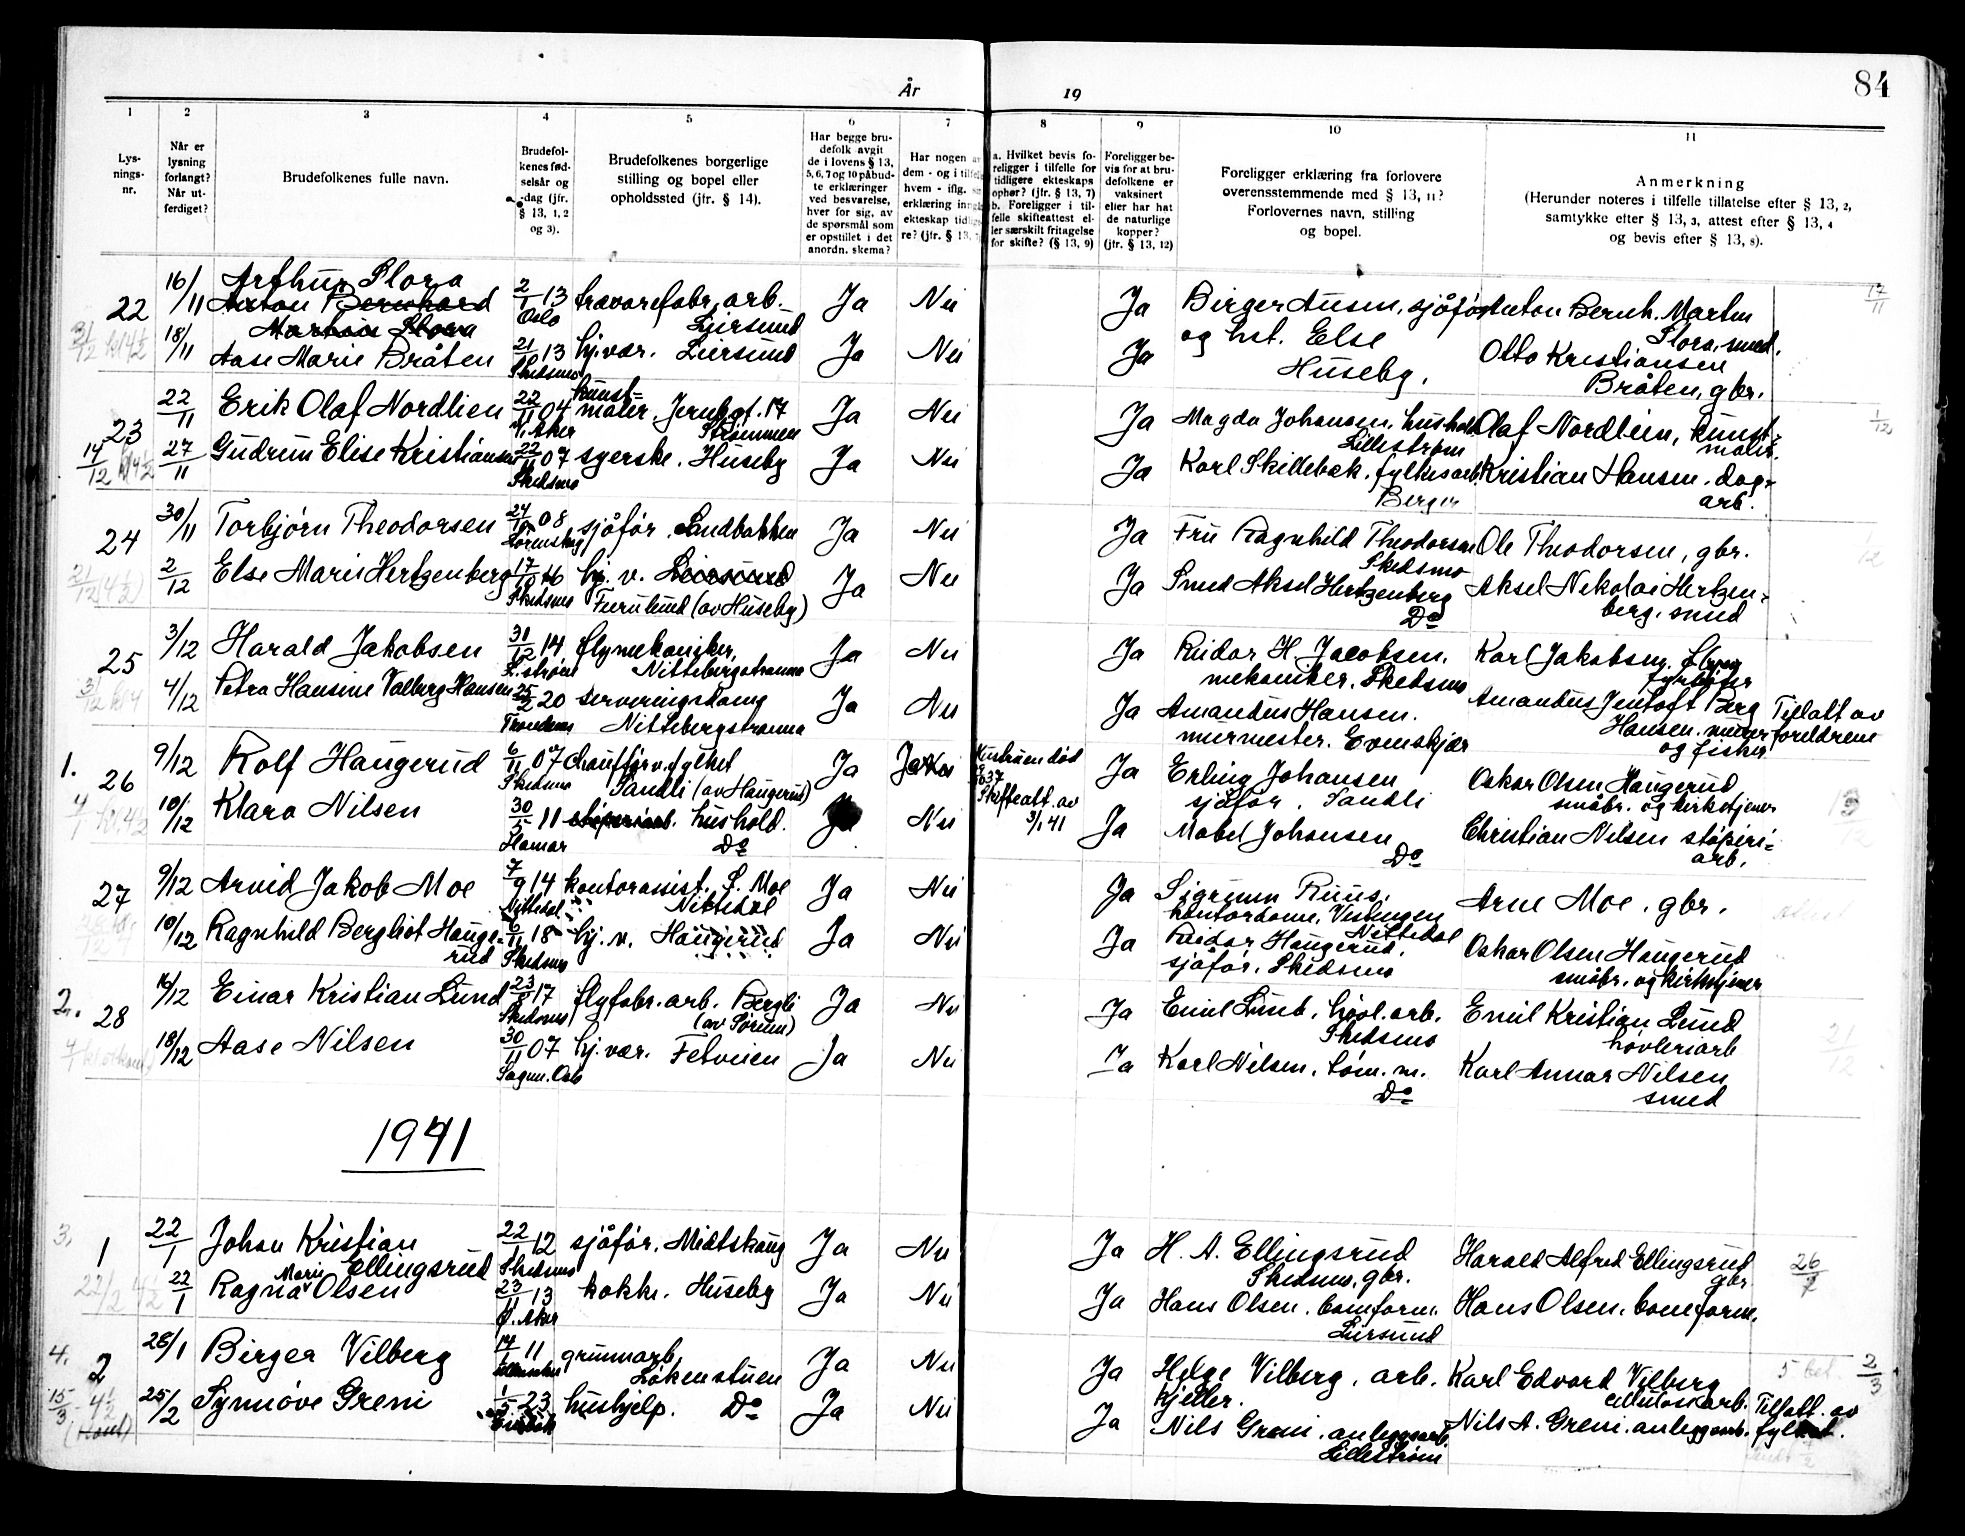 84
År
19
1 2 3 4 5 6 7 8 9 10 11
Lys-
nings-
nr.
Når er
lysning
forlangt?
Når ut-
ferdiget?
Brudefolkenes fulle navn.
Brudefol-
kenes fød-
selsår og
-dag (jfr.
§ 13, 1, 2
og 3).
Brudefolkenes borgerlige
stilling og bopel eller
opholdssted (jfr. § 14).
Har begge bru-
defolk avgit
de i lovens § 13,
5, 6, 7 og 10 påbud-
te erklæringer
ved besvarelse,
hver for sig, av
de spørsmål som
er opstillet i det
anordn. skema?
Har nogen av
dem - og i tilfelle
hvem - iflg.
erklæring inngått
ekteskap tidlige-
re? (jfr. § 13,
a. Hvilket bevis fo-
religger i tilfelle for
tidligere ekteskaps
ophør? (jfr. § 13, 7)
b. Foreligger i til-
felle skifteattest el-
ler særskilt fritagelse
for skifte? (§ 13, 9)
Foreligger be-
vis for at bru-
defolkene er
vaksinert
eller har hat
de naturlige
kopper?
(jfr. § 13, 12)
Foreligger erklæring fra forlovere
overensstemmende med § 13, 11?
Forlovernes navn, stilling
og bopel.
Anmerkning
(Herunder noteres i tilfelle tillatelse efter § 13, 2,
samtykke efter § 13, 3, attest efter § 13, 4
og bevis efter § 13, 8).
22 16/11 Arthur Flora 2/1 13 Oslo trævarefabr. arb. Leirsund Ja Nei Ja Birger Ausen, sjåfør Anton Bernh. Marten Flora, smed. 17/11
Anton Bernhard
Marten Flora
18/11 Aase Marie Bråten 21/10 13 Skedsmo hj. vær. Leirsund Ja Nei Ja og hst. Else Huseby. Otto Kristiansen Bråten, gbr.
23 22/11 Erik Olaf Nordlien 22/11 04 V. Aker kunst-
maler. Jernbgt. 17 Strømmen Ja Nei Ja Magda Johansen, hushold. Lillestrøm Olaf Nordlien, kunst-
maler. 1/12
14/12 kl 4½ 27/11 Gudrun Elise Kristiansen 22/11 07 Skedsmo syerske. Huseby Ja Nei Ja Karl Skillebæk. fylkesarb. Berger Kristian Hansen. dag-
arb.
24 30/11 Torbjørn Theodorsen 24/10 08 Lørenskog sjåfør. Sandbakken Ja Nei Ja Fru Ragnhild Theodorsen Skedsmo Ole Theodorsen, gbr. 1/12
21/12 (4½) 2/12 Else Marie Hertzenberg 17/10 16 Skedsmo hj. v. Leirsund Furulund (av Huseby) Ja Nei Ja Smed Aksel Hertzenberg Do Aksel Nikolai Hertzen-
berg. smed
25 3/12 Harald Jakobsen 31/12 14 L.strøm flymekaniker, Nittebergstranna Ja Nei Ja Reidar H. Jacobsen, mekaniker. Skedsmo Karl Jakobsen. fyrbøter
3/12 kl 4 4/12 Petra Hansine Valborg Hansen 25/2 20 Trondenes serveringsdame Nittebergstranna Ja Nei Ja Amandus Hansen. murmester. Evenskjær Amandus Jentoft Berg Hansen. murer og fisker Tillatt av foreldrene
1. 26 9/12 Rolf Haugerud 6/11 07 Skedsmo chauffør v. fylket Sandli (av Haugerud) Ja Ja Nei Hustruen død 37 Skifteatt. av 3/1 41 Ja Erling Johansen sjåfør. Sandli Oskar Olsen Haugerud småbr. og kirketjener
4/1 kl. 4½ 10/12 Klara Nilsen 30/5 11 Hamar støperiarb. hushold. Do Ja Nei Ja Mabel Johansen Do Christian Nilsen støperi-
arb.
27 9/12 Arvid Jakob Moe 7/9 14 Nittedal kontorassist. S. Moe Nittedal Ja Nei Ja Sigrunn Ruus, kontordame, Nittedal Arne Moe. gbr.
10/12 Ragnhild Bergliot Hauge-
rud 6/11 18 Skedsmo hj. v. Haugerud Ja Nei Ja Reidar Haugerud, sjåfør. Skedsmo Oskar Olsen Haugerud småbr. og kirketjener
2. 28 16/12 Einar Kristian Lund 23/8 17 Skedsmo flyfabr. arb. Bergli (av Sørum) Ja Nei Ja Emil Lund, høvl. arb. Skedsmo Emil Kristian Lund høvleriarb 21/12
18/12 Aase Nilsen 30/11 07 Sagene. Oslo hj. vær. Fetveien Ja Nei Ja Karl Nilsen, tøm. m. Do Karl Annar Nilsen smed
1941
3. 1 22/1 Johan Kristian Ellingsrud 22/1 12 Skedsmo sjåfør. Midtskaug Ja Nei Ja H. A. Ellingsrud Skedsmo, gbr. Harald Alfred Ellingsrud gbr. 26/1
22/2 4½ 22/1 Ragna Marie Olsen 23/11 13 Ø. Aker kokke. Huseby Ja Nei Ja Hans Olsen. tomtform. Leirsund Hans Olsen. tomtform.
4. 2 28/1 Birger Vilberg 14/1 11 grunnarb. Løkenstuen Ja Nei Ja Helge Vilberg, arb. Kjeller. Karl Edvard Vilberg cellulosearb. 2/3
15/3 4½ 25/2 Synnøve Greni 1/5 23 Eidsvoll hushjelp. Do Ja Nei Ja Nils Greni. anleggsarb. Lillestrøm Nils A. Greni. anleggsarb. Tillatt. av fylket.